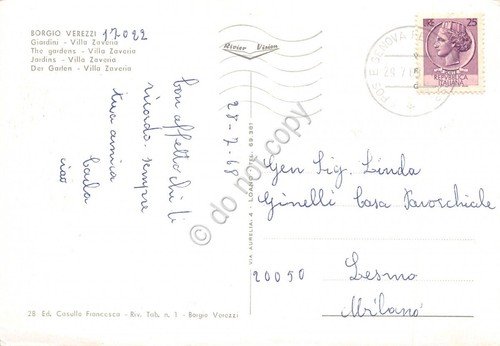 BORGIO VEREZZI 17022
Giardini - Villa Zaveria
The gardens - Villa Zaveria
Jardins - Villa Zaveria
Der Garten - Villa Zaveria
Rivier Vision
25
28-7-68
con affetto chi ti
ricorda sempre
tua amica
ciao
Gen Sig. Linda
Ginelli Casa Parocchiale
20050 Lesmo
Milano
VIA AURELIA, 4 - LOANO - TEL. 69.301
28 Ed. Casulla Francesco - Riv. Tab. n. 1 - Borgio Verezzi
do not copy